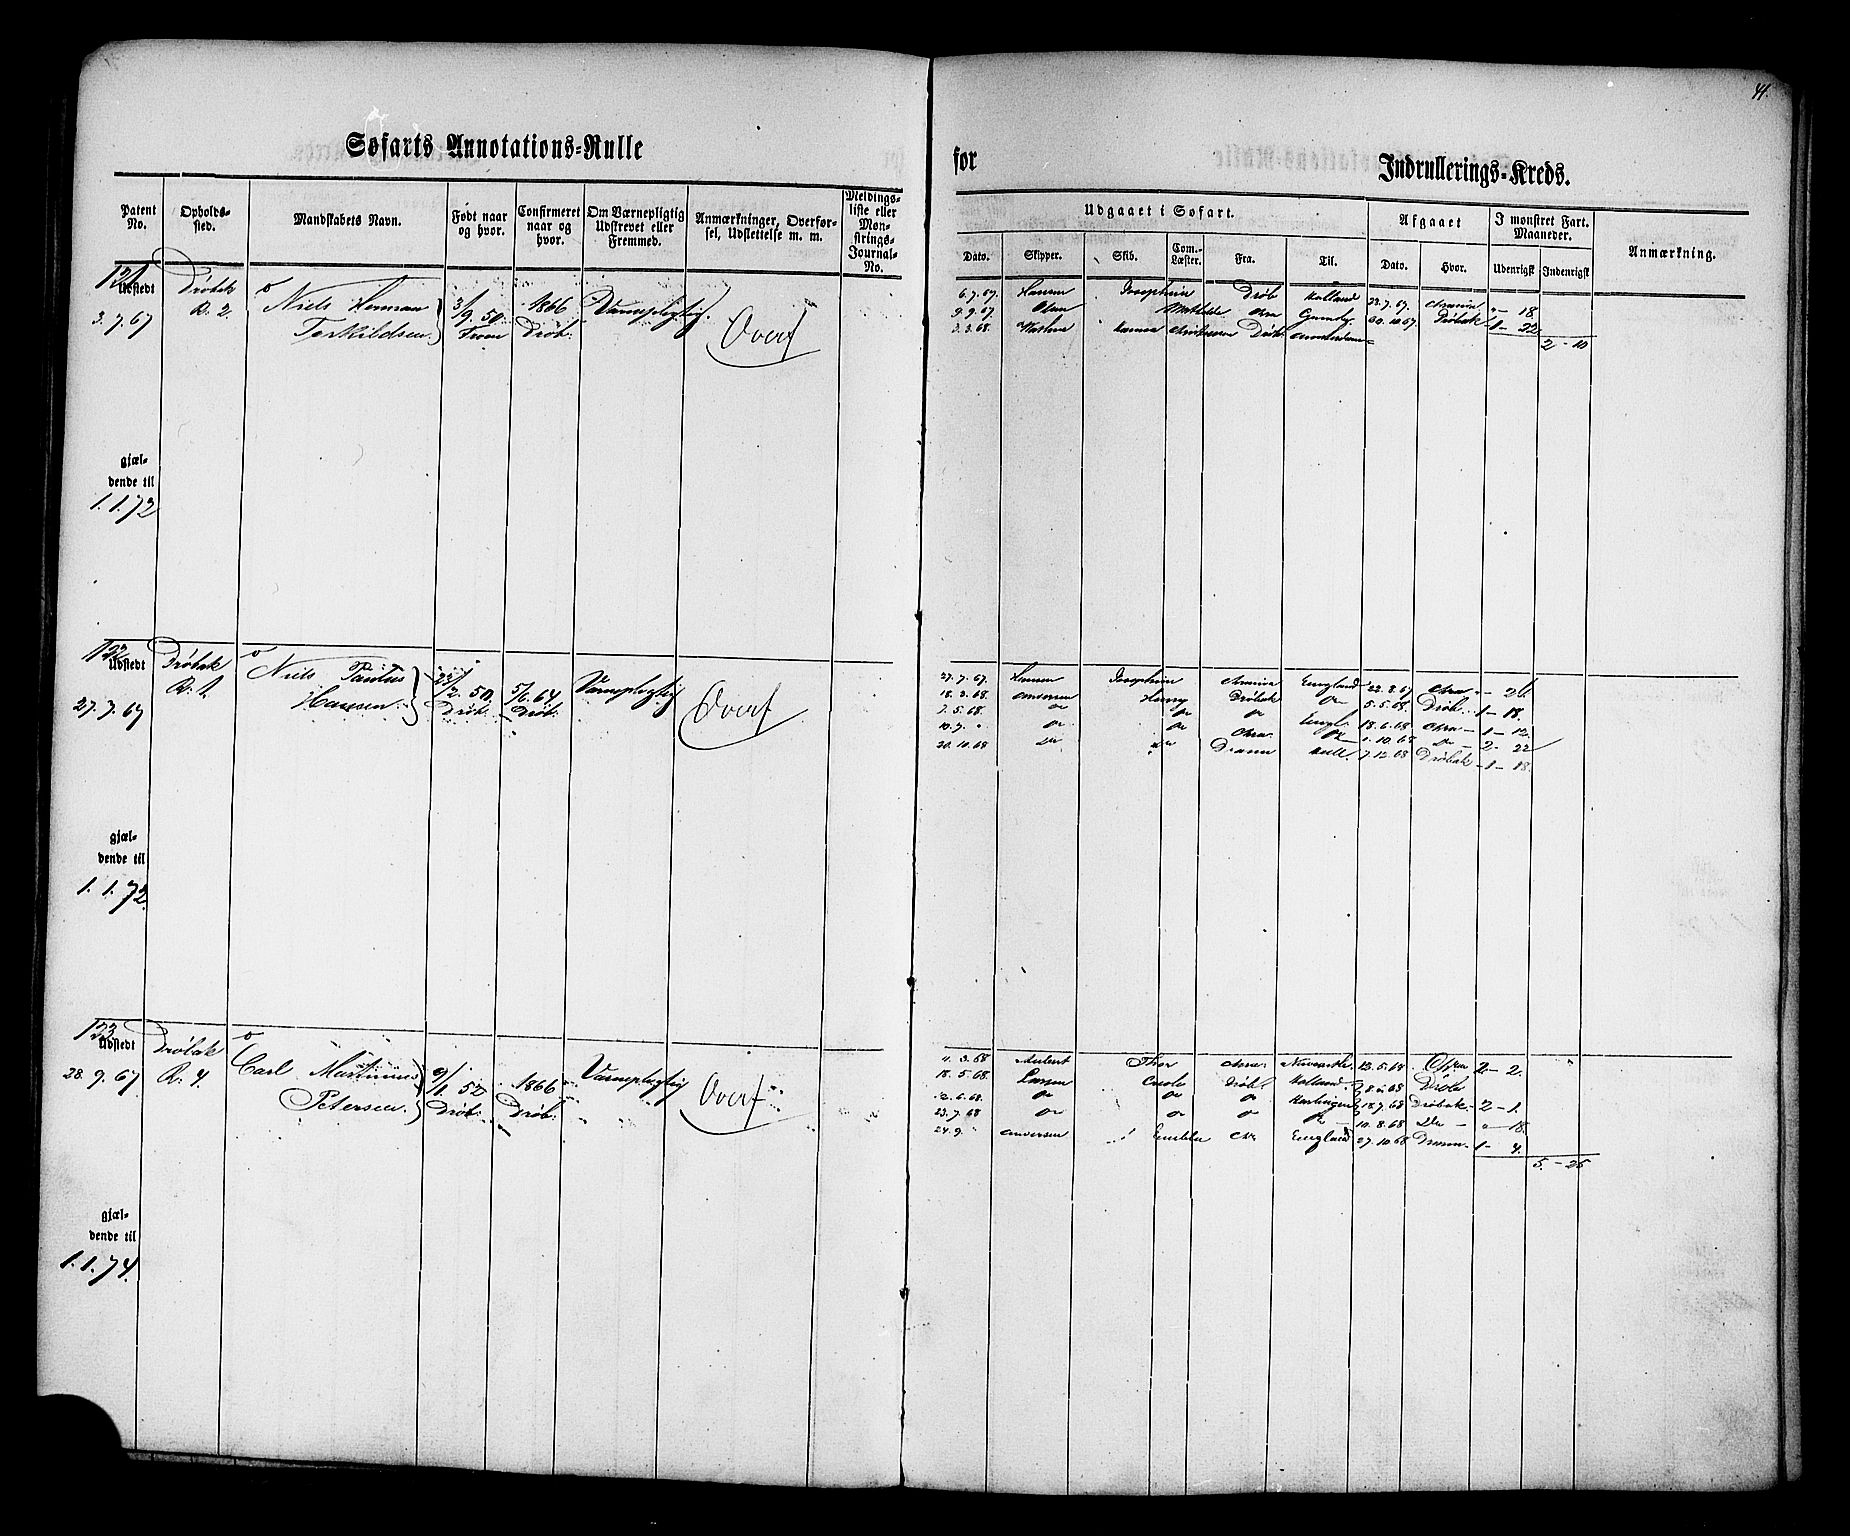 41.
Søfarts Annotations-Rulle
for
Indrullerings-Kreds.
Patent No.
Opholds-sted.
Mandskabets Navn.
Født naar og hvor.
Confirmeret naar og hvor.
Om Værnepligtig Udskrevet eller Fremmed.
Anmærkninger, Overførsel, Udslettelse m. m.
Meldingsliste eller Mønstrings-Journal-No.
Udgaaet i Søfart.
Afgaaet
I mønstret Fart. Maaneder.
Anmærkning.
Dato.
Skipper.
Skib.
Com.-Læster.
Fra.
Til.
Dato.
Hvor.
Udenrigsk
Indenrigsk
121 Drøbak Niels Herman 3/9. 50. 1866 Værnepligtig.
Udstedt R. 2. Terkildsen Drøb.
3.7.67 Overf
6.7.67. Hansen Josephine Drøb Holland 23.7.67. - 18.
9.9.67. Olsen Mathilde 20.10.67 Drøbak 1- 22
2.3.68. Drøb. Amsterdam
2 - 10
gjæl-
dende til
1.1.72
122 Drøbak Niels Paulus 23/2. 50 5/6. 64 Værnepligtig
Udstedt R. 1. Hansen Drøb. Drøb.
27.7.67 Overf
27.7.67. Hansen Josephine England 22.8.67 Chra - 26
18.3.68. Andersen Henry Drøbak Do 5.5.68. Drøb. 1- 18.
7.5.68. Do Do Do Engl. 18.6.68 Chra 1- 12.
10.7. " Do Do Chra. Do 1.10.68 Do 2- 22
20.10.68 Do Do Dramm Hull. 7.12.68 Drøbak 1- 18.
gjæl-
dende til
1.1.72.
123 Drøbak Carl Martinius 9/1. 52 1866 Værnepligtig
Udstedt R. 4. Petersen. Drøb. Drøb.
28.9.67 Overf
11.3.68 Thor 12.5.68 2- 2. "
18.5.68. Larsen Drøb. Holland. Drøb
12.6.68. Do Do Do Harlingen 18.7.68 Drøbak 2- 1.
23.7.68 Do Do Do Do 10.8.68 Do - " 18.
24.9. " Andersen England 27.10.68 Dramm. 1- 4.
5. - 25
gjæl-
dende til
1.1.74.